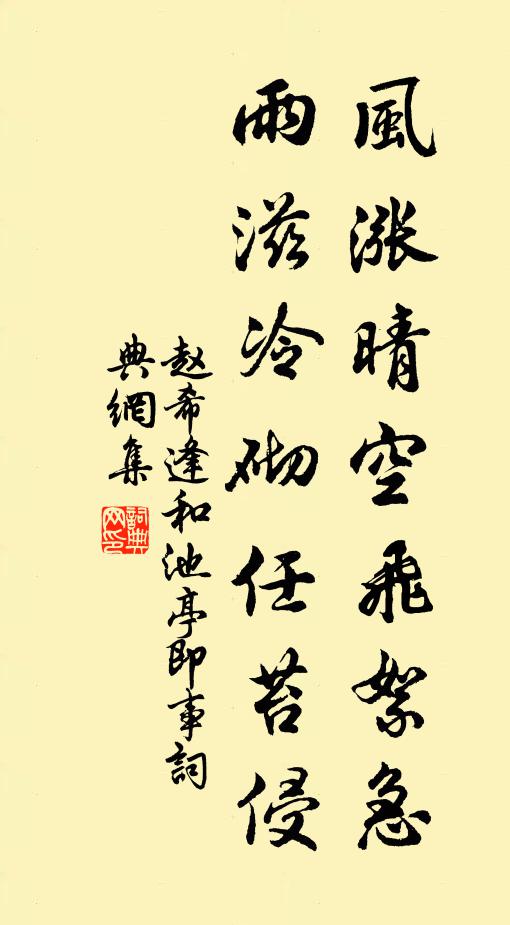 風漲晴空飛絮急
雨滋冷砌任苔侵
赵希逢和池亭即事詞
典網集
詞典
网印